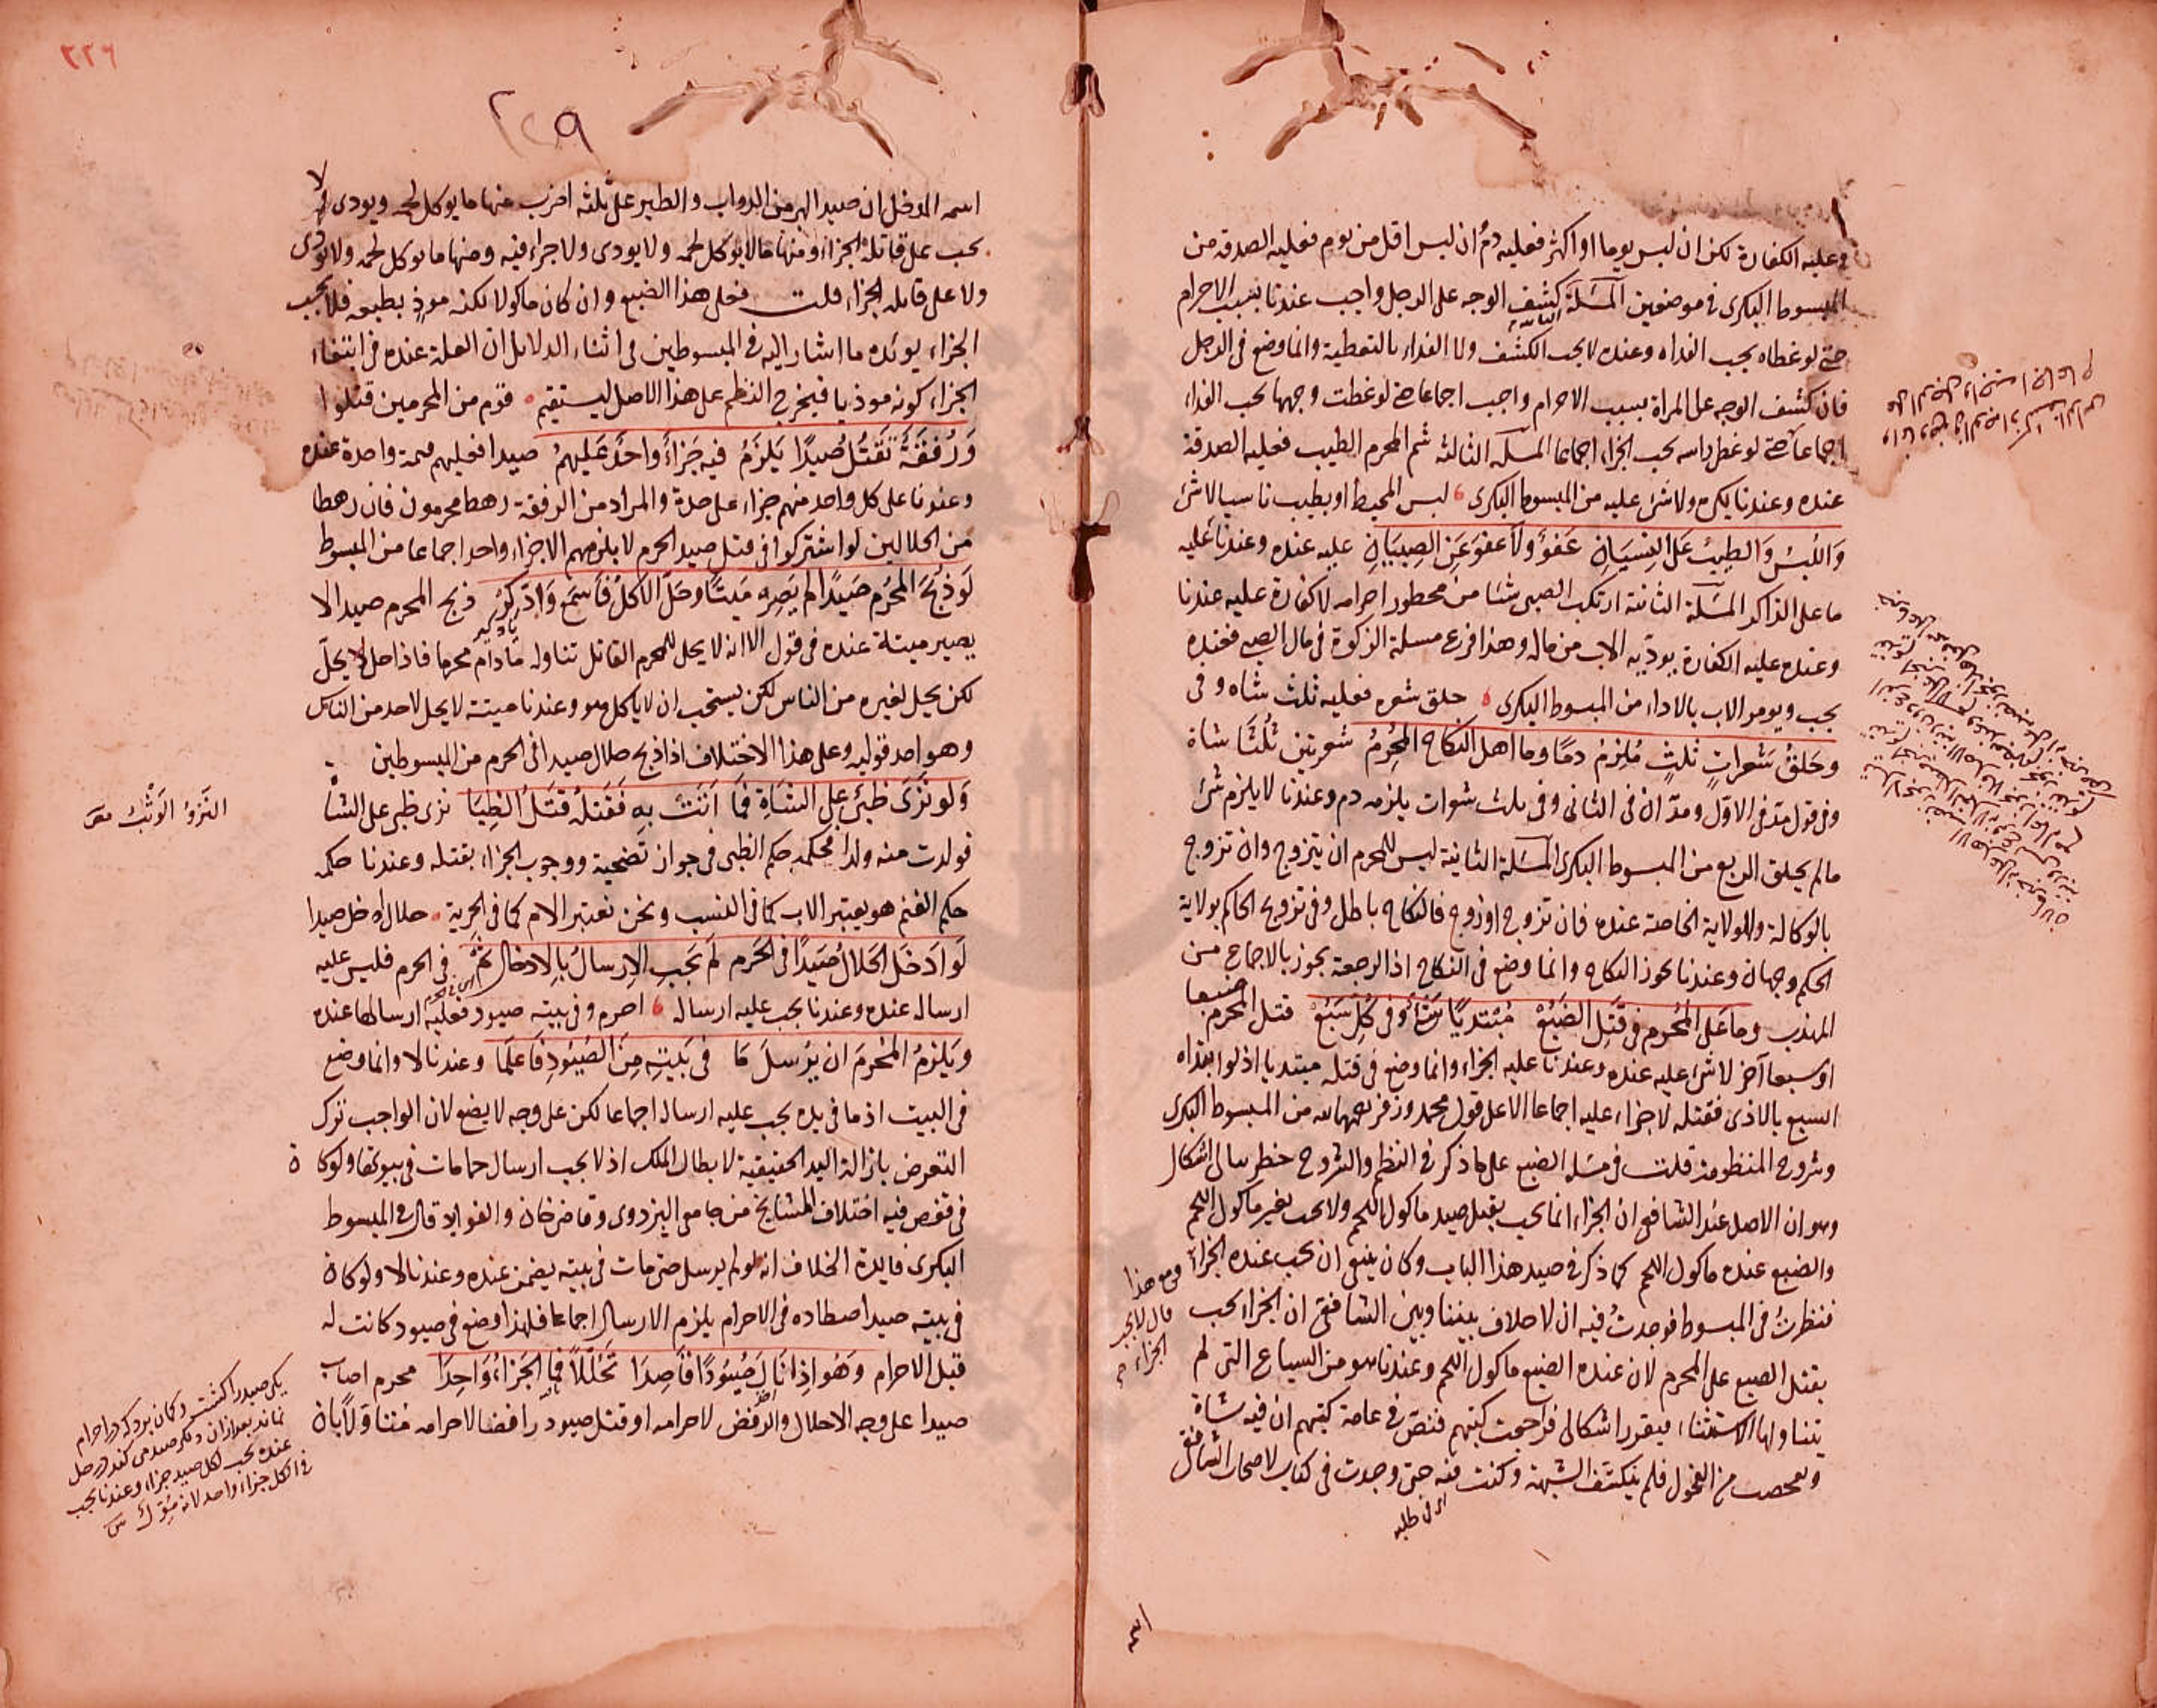 وعليه الكفارة لكن ان لبس يوما او اكثر فعليه دم ان لبس اقل من يوم فعليه الصدقة من
المبسوط البكرى فى موضعين المسئلة الثانية كشف الوجه على الرجل واجب عندنا بسبب الاحرام
حتى لو غطاه يجب الفداه وعنده لا يجب الكشف ولا الفداء بالتغطية وانما وضع فى الرجل
فان كشف الوجه على المراة بسبب الاحرام واجب اجماعا حتى لو غطت وجهها يجب الفداء
اجماعا حتى لو غطى راسه يجب الجزاء اجماعا المسئله الثالثه شم المحرم الطيب فعليه الصدقة
عنده وعندنا يكره ولا شئ عليه من المبسوط البكرى لبس المخيط او يطيب ناسيا لا شئ
وَاللُبسُ وَالطيبُ عَلى النِسيَانِ عَفوٌ وَلا عَفوَ عَنِ الصِبيَانِ عليه عنده وعندنا عليه
ما على الذاكر المسئلة الثانية ارتكب الصبى شئا من محظور احرامه لا كفارة عليه عندنا
وعنده عليه الكفارة يوديه الاب من ماله وهذا فرع مسئلة الزكوة فى مال الصبى فعنده
يجب ويومر الاب بالاداء من المبسوط البكرى حلق شعره فعليه ثلث شاه وفى
وحَلقُ شَعراتٍ ثلثٍ مُلزِمُ دمًا وما اهل النكاح المُحرِمُ شعرتين ثُلثَا شاة
وفى قول مدّ فى الاول ومدّان فى الثانى وفى ثلث شعرات يلزمه دم وعندنا لا يلزم شئ
مالم يحلق الربع من المبسوط البكرى المسئلة الثانية ليس للمحرم ان يتزوج وان تزوج
بالوكالة والولاية الخاصة عنده فان تزوج او زوج فالنكاح باطل وفى تزويج الحاكم بولاية
الحكم وجهان وعندنا يجوز النكاح وانما وضع فى النكاح اذ الرجعة يجوز بالاجماع من
المهذب وما عَلى المُحرِم فى قَتلِ الضَبُعْ مُبتديًا شئٌ وفى كُلِ سَبُعْ قتل المحرم ضبعا
او سبعا آخر لا شئ عليه عنده وعندنا عليه الجزاء وانما وضع فى قتله مبتديا اذ لو ابتداه
السبع بالاذى فقتله لا جزاء عليه اجماعا الا على قول محمد وزفر رحمهما الله من المبسوط البكرى
وشروح المنظومة قلت فى مسئلة الضبع على ما ذكر فى النظم والشروح خطر ببالى اشكال
وهو ان الاصل عند الشافعى ان الجزاء انما يجب بقتل صيد ماكول اللحم ولا يجب بغير ماكول اللحم
والضبع عنده ماكول اللحم كما ذكر فى صيد هذا الباب وكان ينبغى ان يجب عنده الجزاء ومع هذا قال لا يجب الجزاء
فنظرتُ فى المبسوط فوجدتُ فيه ان لا خلاف بيننا وبين الشافعى ان الجزاء يجب
بقتل الضبع على المحرم لان عنده الضبع ماكول اللحم وعندنا هو من السباع التى لم
يتناولها الاستثناء فيقرر اشكالى فراجعت كتبهم فنصّ فى عامة كتبهم ان فيه شاة
وتفحصت من الفحول فلم ينكشف الشبهة وكنت فيه حتى وجدت فى كتاب لاصحاب الشافعى
اى فى طلبه
اسمه
٢٢٦
٢٢٩
اسمه المدخل ان صيد البر من الدواب والطير على ثلثه اضرب منها ما يوكل لحمه ويودى لا
يجب على قاتله الجزاء ومنها ما لا يوكل لحمه ولا يودى ولا جزاء فيه ومنها ما يوكل لحمه ولا يودى
ولا على قاتله الجزاء قلت فعلى هذا الضبع وان كان ماكولا لكنه موذٍ بطبعه فلا يجب
الجزاء يويده ما اشار اليه فى المبسوطين فى اثناء الدلايل ان العلة عنده فى انتفاء
الجزاء كونه موذيا فيخرج النظم على هذا الاصل ليستقيم قوم من المحرمين قتلوا
وَرُفقَةٌ تَقتُل صَيدًا يَلزَمُ فيه جَزاءٌ واحدٌ عَليهمُ صيدا فعليهم قيمة واحدة عنده
وعندنا على كل واحد منهم جزاء على حدة والمراد من الرفقة رهط محرمون فان رهطا
من الحلالين لو اشتركوا فى قتل صيد الحرم لا يلزمهم الا جزاء واحد اجماعا من المبسوط
لَو ذبحَ المُحرِم صَيدًا لم يَصِر مَيتًا وحَلّ الاكلُ فَاسمَع وَادّكِر ذبح المحرم صيدا لا
يصير ميتة عنده فى قول الا انه لا يحل للمحرم القاتل تناوله مادام محرما فاذا حل لا يحلّ
لكن يحل لغيره من الناس لكن يستحب ان لا ياكل هو وعندنا ميتة لا يحل لاحد من الناس
وهو احد قوليه وعلى هذا الاختلاف اذا ذبح حلال صيدا فى الحرم من المبسوطين
وَلو نَزَى ظبىٌ على الشاةِ فمَا اَتَتْ بهِ فَقَتلُه قَتلُ الظِبَا نزى ظبى على الشاة
فولدت منه ولدا فحكمه حكم الظبى فى جواز تضحية ووجوب الجزاء بقتله وعندنا حكمه
حكم الغنم هو يعتبر الاب كما فى النسب ونحن نعتبر الام كما فى الحرية حلال ادخل صيدا
لَو ادخَل الحَلالُ صَيدًا فى الحَرم لَم يَجبِ الاِرسالُ بالاِدخال ثَمَّ فى الحرم فليس عليه
ارساله عنده وعندنا يجب عليه ارساله احرم وفى بيته صيود فعليه ارسالها عنده
ويَلزمُ المُحرِمَ ان يُرسلَ مَا فى بَيتِه مِنَ الصُيُودِ فَاعلَمَا وعندنا لا وانما وضع
فى البيت اذ ما فى يده يجب عليه ارساله اجماعا لكن على وجه لا يضيع لان الواجب ترك
التعرض بازالة اليد الحقيقية لا بطال الملك اذ لا يجب ارسال حمامات فى بيوتها ولو كان
فى قفص فيه اختلاف المشايخ من جامعى البزدوى وقاضى خان والفوايد قال فى المبسوط
البكرى فايدة الخلاف انه لو لم يرسل حتى مات فى بيته يضمن عنده وعندنا لا ولو كان
فى بيته صيدا اصطاده فى الاحرام يلزم الارسال اجماعا فلهذا وضع فى صيود كانت له
قبل الاحرام وَهُو اِذا نَالَ صُيُودًا قَاصِدَا تَحَلُّلاً فيه الجَزاءُ وَاحِدَا محرم اصاب
صيدا على وجه الاحلال والرفض لاحرامه او قتل صيود رافضا لاحرامه متناولا بان
النَزوُ الوَثْبُ
يكى صيد را كشت وكمان برد كه در احرام
نماند بعد ازان ديكر صيد مى كند در حل
عنده يجب لكل صيد جزاء وعندنا يجب
فى الكل جزاء واحد لانه